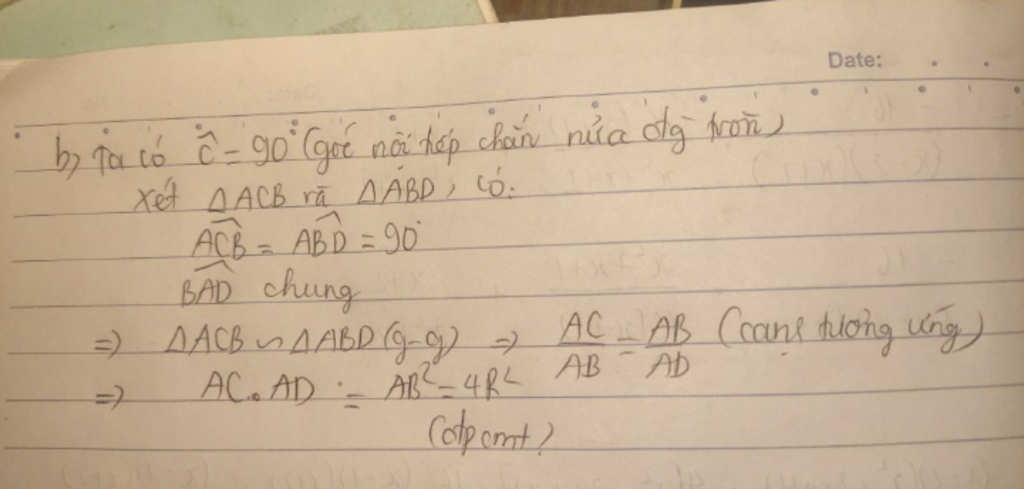 Date:
b, Ta có Ĉ = 90° (góc nội tiếp chắn nửa đtg tròn)
Xét ΔACB và ΔABD, có:
\widehat{ACB} = \widehat{ABD} = 90°
\widehat{BAD} chung
=> ΔACB ∽ ΔABD (g-g) => AC/AB = AB/AD (cạnh tương ứng)
=> AC.AD = AB² = 4R²
(đpcmt)